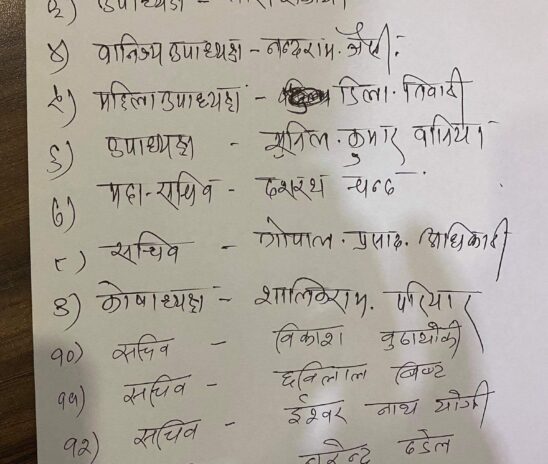 उपाध्यक्ष -
४) वानिज्य उपाध्यक्ष - नन्दराम. जैसी.
५) महिला उपाध्यक्ष - डिला. तिवारी
६) उपाध्यक्ष - सुनिल. कुमार वानिया
७) महा-सचिव - दशरथ चन्द
८) सचिव - गोपाल. प्रसाद. अधिकारी
९) कोषाध्यक्ष - शालिकराम. परियार
१०) सचिव - विकाश वुढाथोकी
११) सचिव - छविलाल बिष्ट
१२) सचिव - ईश्वर नाथ योगी
नरेन्द्र डडेल